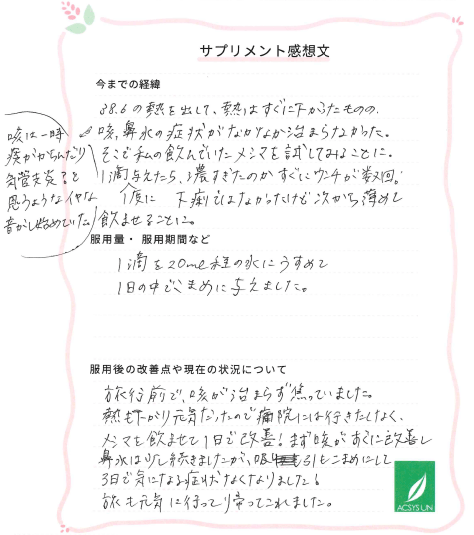 サプリメント感想文
今までの経緯
38.6の熱を出して、熱はすぐに下がったものの、
咳、鼻水の症状がなかなか治まらなかった。
そこで私の飲んでいたメシマを試してみることに。
1滴与えたら、濃すぎたのかすぐにウンチが数回。
1度に 下痢ではなかったけど次から薄めて
飲ませることに。
咳は一時
痰がからんだり
気管支炎?と
思うようなイヤな
音がし始めていた
服用量・服用期間など
1滴を20ml程の水にうすめて
1日の中でこまめに与えました。
服用後の改善点や現在の状況について
旅行前で、咳が治まらず焦っていました。
熱も下がり元気だったので病院には行きたくなく、
メシマを飲ませて1日で改善!まず咳がすぐに改善し
鼻水は少し続きましたが、吸引もこまめにして
3日で気になる症状がなくなりました!
旅も元気に行って帰ってこれました。
ACSYSUN